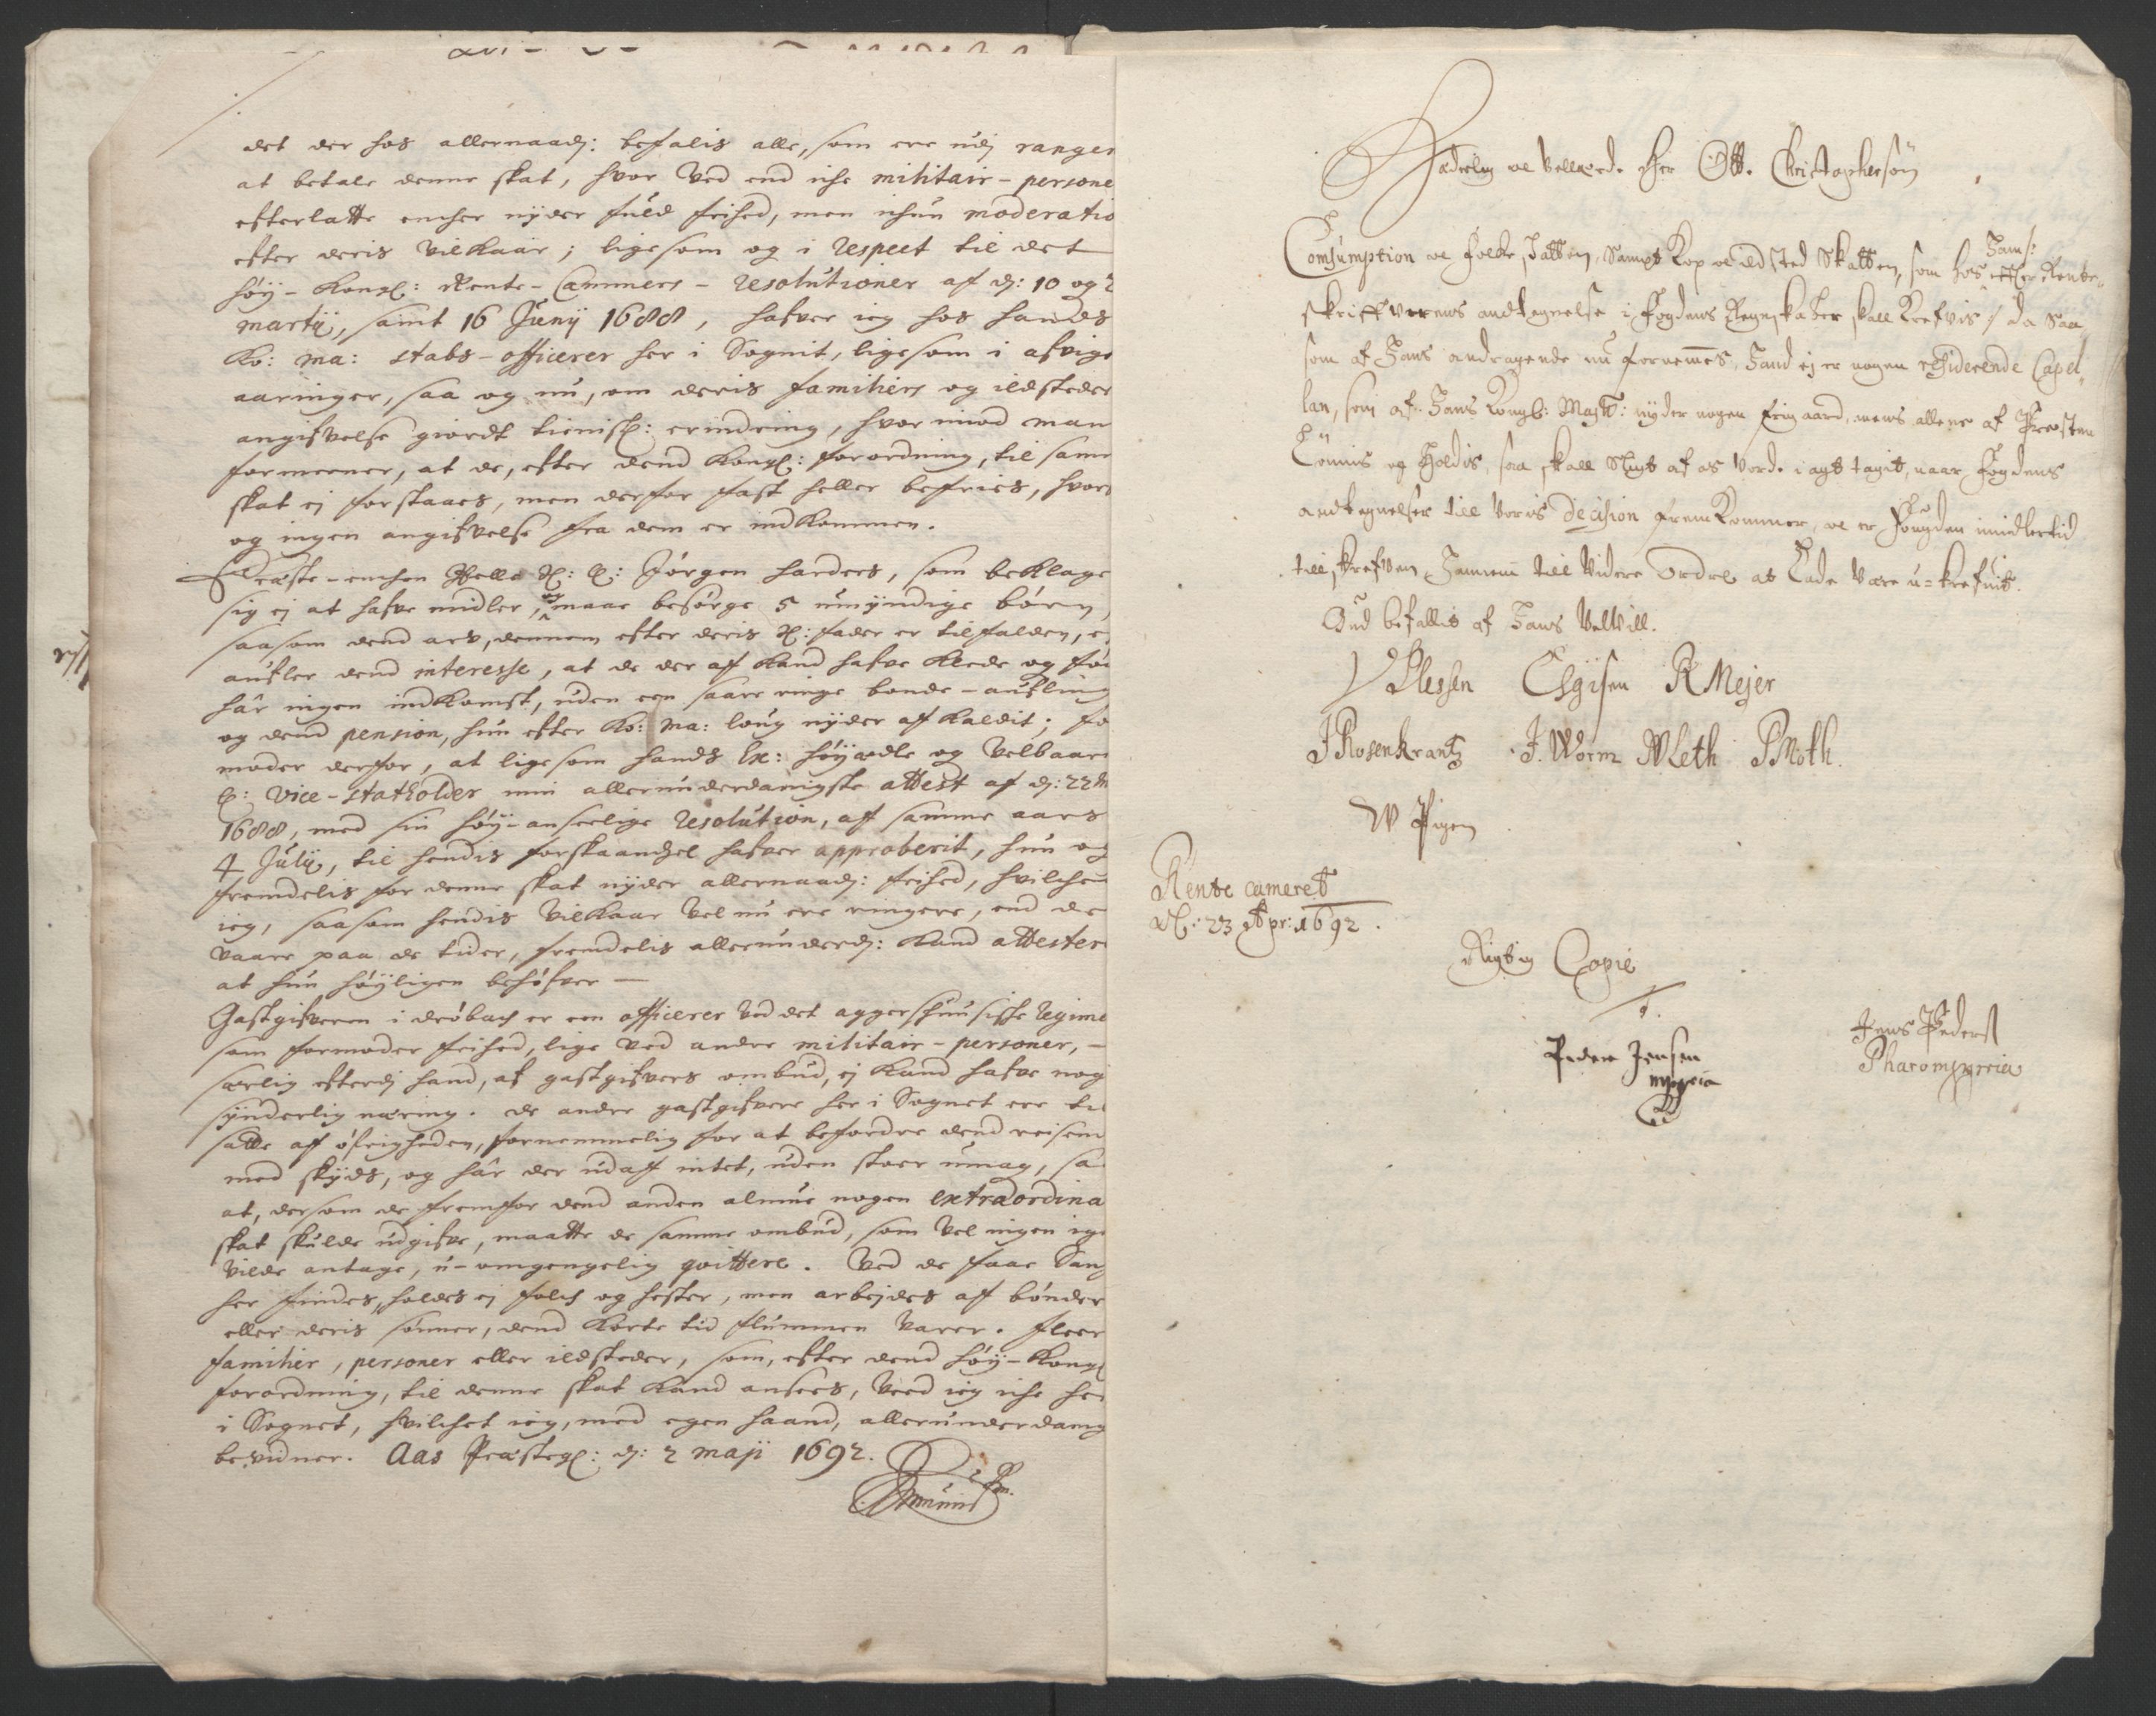 det der hos allernaad: befalis alle, som ere udj ranger
at betale denne skat, hvor ved end iche militair-persone
efterlatte encher nyder fuld frihed, men ichun moderatio
efter deris vilkaar; ligesom og i respect til det
høy-Kongl: Rente-Cammers-resolutioner af d: 10 og 2
martij, samt 16 Junij 1688, hafver ieg hos hands
Ko: ma: stabs-officerer her i Sognit, ligesom i afvige
aaringer, saa og nu, om deris familiers og ildsteder
angifvelse giordt tienisl: erindring, hvor imod man
formeener, at de, efter dend Kongl: forordning, til samme
skat ej forstaaes, men derfor fast heller befries, hvor
og ingen angifvelse fra dem er indkommen.
Præste-enchen Sl: H: Jørgen harders, som beklage
sig ej at hafve midler, og maae besørge 5 umyndige børn,
saasom dend arv, dennem efter deris Sl: fader er tilfalden, ej
aufler dend interesse, at de der aff kand hafve klæde og føde
hâr ingen indkomst, uden een saare ringe bonde-aufling
og dend pension, hun efter Ko: ma: loug nyder aff kaldit; for
moder derfor, at ligesom hands Ex: høyædle og velbaarne
H: vice-statholder min allerunderdanigste attest af d: 22
1688, med sin høy-anseelige resolution, aff samme aars
4 Julij, til hendis forskaansel hafver approberit, hun og
fremdelis for denne skat nyder allernaad: frihed, hvilchen
ieg, saasom hendis vilkaar vel nu ere ringere, end de
vaare paa de tider, fremdelis allerunderd: kand attestere
at hun høyligen behøfver —
Gastgifveren i drøbach er een officerer ved det aggershuusische regime
som formoder frihed, lige ved andre militair-personer, —
særlig efterdj hand, af gastgifvers ombud, ej kand hafve nog
synderlig næring. de andre gastgifvere her i Sognet ere til
satte aff øfrigheden, fornemmelig for at befordre dend reisende
med skyds, og hâr der udaff intet, uden stoer umag, sa
at, dersom de fremfor dend anden almue nogen extraordina
skat skulde udgifve, maatte de samme ombud, som vel ingen ige
vilde antage, u-omgengelig qvittere. Ved de faae Saug
her findes, holdes ej folch og hester, men arbejdes aff bønder
eller deris sønner, dend korte tid flummen varer. fleer
familier, personer eller ildsteder, som, efter dend høy-Kongl
forordning, til denne skat kand ansees, veed ieg iche her
i Sognet, hvilchet ieg, med egen haand, allerunderdanig
bevidner. Aas Præstegl: d: 2 maji 1692.
Hæderlig oc Vellærd. Her Ott. Christophersøn
Consumption oc Folcke Skatten, Sampt Kop oc Ildsted Skatten, som hos Ham/: efter Rente-
skrifverens andtegnelse i Fogdens Regnskaber skall Krefvis / da saa
som af Hans andragende nu fornemmes, Hand ej er nogen residerende Capel
lan, som af Hans Kongl: Mayt: nyder nogen frigaard, mens allene af Præsten
Lønnis og Holdis, saa skall Sligt af os vord. i agt tagit, naar Fogdens
andtegnelser till voris decision fremkommer, oc er Fougden imidlertid
tillskrefven Hannem till videre Ordre at Lade være u-krefuit.
Gud befallis af Hans Velvill.
V Plessen Elgisen R Mejer
J Rosenkrantz J. Worm N Leth P Moth.
W Pigen
Rente cameret
Dl: 23 Apr: 1692.
Rigtig Copie
T.
Peder Jensen
mppria
Jens Peders
Pharompprria